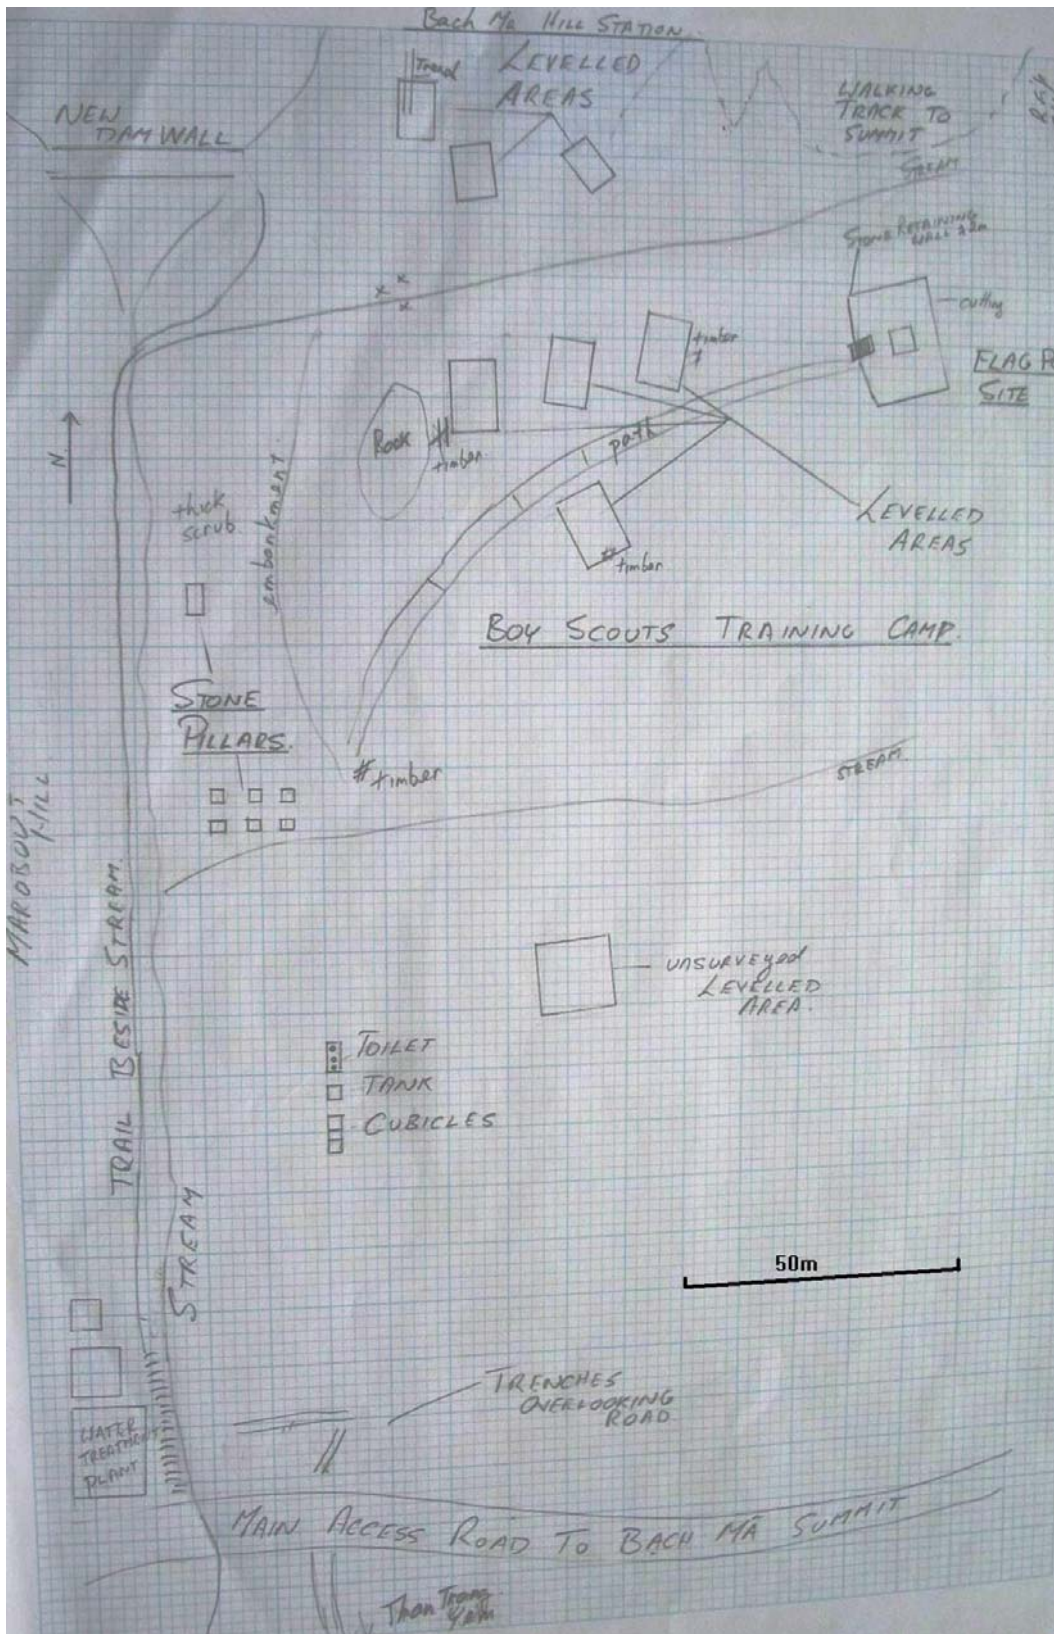 Bach Ma Hill Station
Trench
LEVELLED
AREAS
NEW
DAM WALL
WALKING
TRACK TO
SUMMIT
STREAM
STONE RETAINING
WALL
cutting
FLAG
SITE
timber
Rock
timber
path
N
thick
scrub
embankment
LEVELLED
AREAS
timber
BOY SCOUTS TRAINING CAMP.
STONE
PILLARS.
timber
STREAM
MAROBOUT
HILL
TRAIL BESIDE STREAM.
UNSURVEYED
LEVELLED
AREA.
TOILET
TANK
CUBICLES
STREAM
50m
TRENCHES
OVERLOOKING
ROAD
WATER
TREATMENT
PLANT
MAIN ACCESS ROAD TO BACH MA SUMMIT